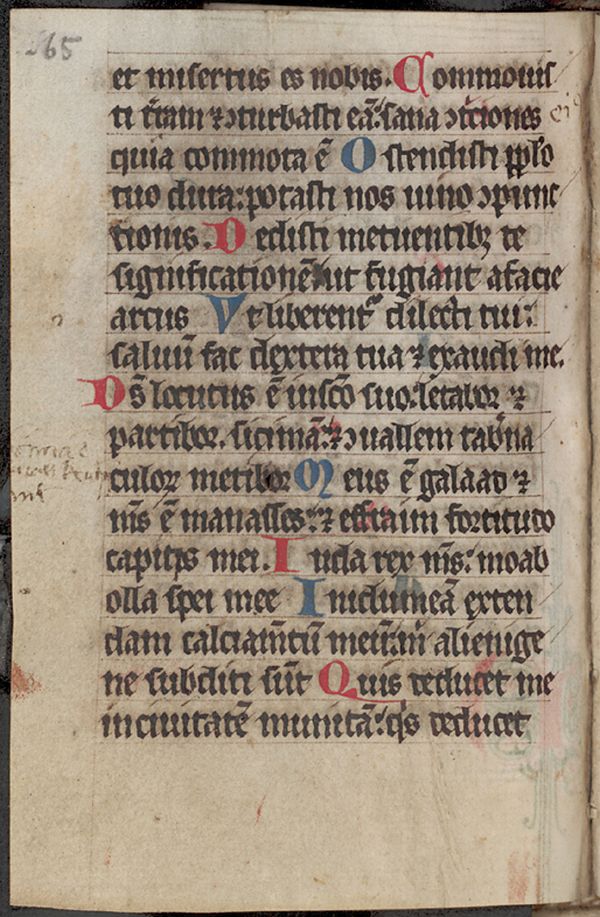 265
et misertus es nobis. Commouis
ti t̄ram ⁊ ↄturbasti eā: sana ↄt̄ciones
quia commota ē Ostendisti pplo
tuo dura: potasti nos uino ↄpunc
tionis. Dedisti metuentibꝫ te
significationē ut fugiant a facie
arcus Vt liberent᷑ dilecti tui:
saluū fac dextera tua ⁊ exaudi me.
Ds̄ locutus ē in sc̄o suo: letabor ⁊
partibor sicimā: ⁊ ↄuallem tab̄na
culoꝝ metibor Meus ē galaad ⁊
m̄s ē manasses: ⁊ effraim fortitudo
capitis mei. Iuda rex m̄s: moab
olla spei mee In idumeā exten
dam calciam̄tū meū: m̄ alienige
ne subditi sūt Quis deducet me
in ciuitatē munitā: q̄s deducet